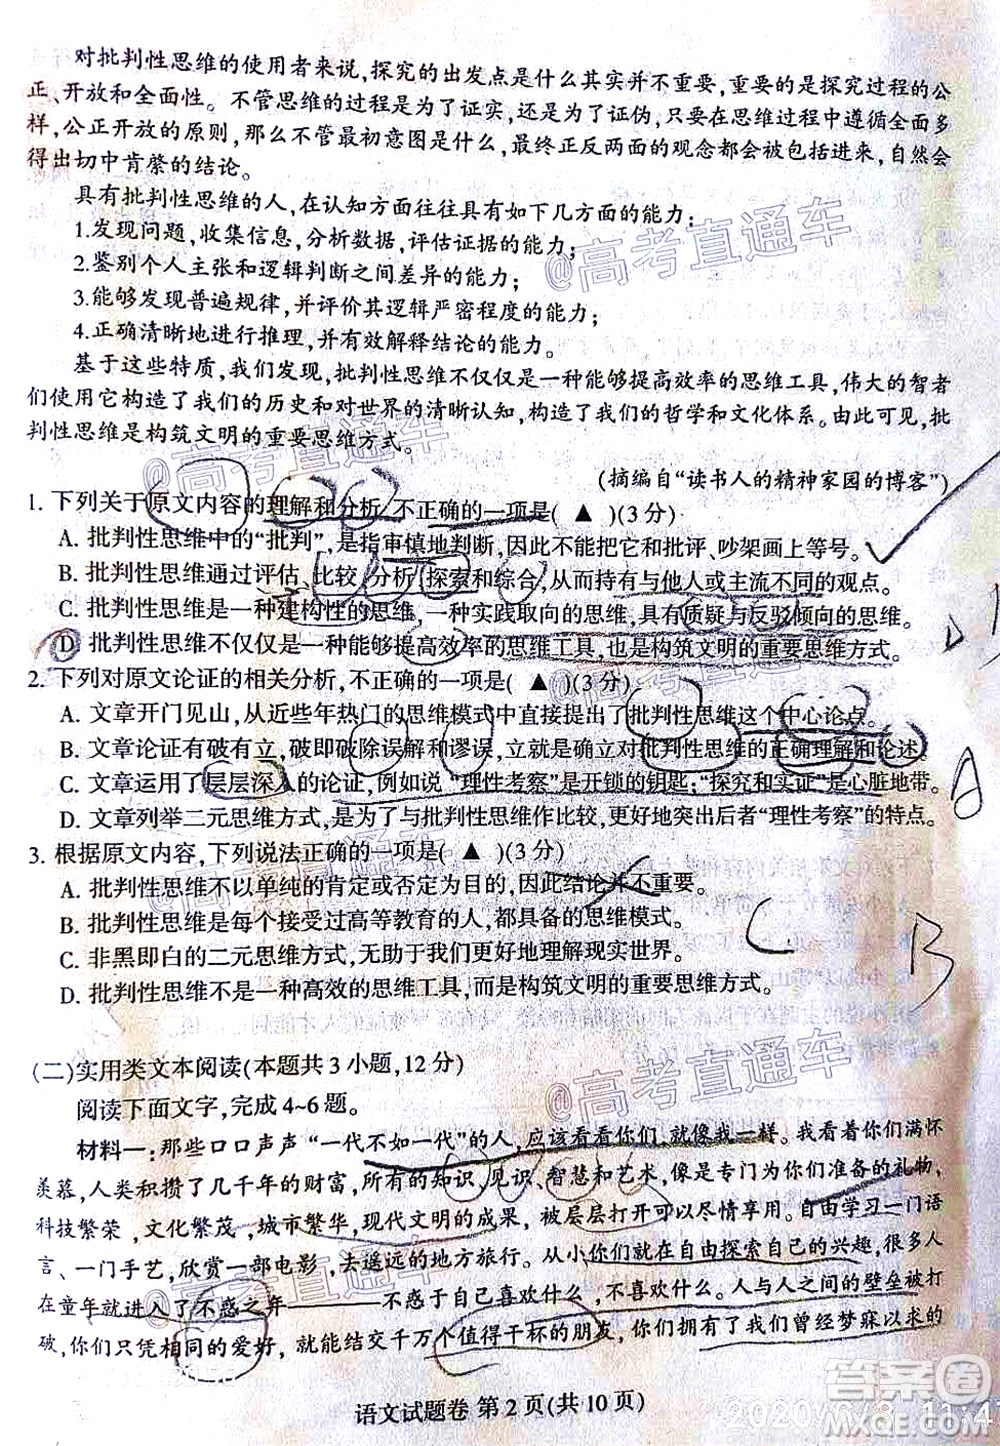 对批判性思维的使用者来说,探究的出发点是什么其实并不重要,重要的是探究过程的公
正、开放和全面性。不管思维的过程是为了证实,还是为了证伪,只要在思维过程中遵循全面多
样,公正开放的原则,那么不管最初意图是什么,最终正反两面的观念都会被包括进来,自然会
得出切中肯綮的结论。
具有批判性思维的人,在认知方面往往具有如下几方面的能力:
1.发现问题,收集信息,分析数据,评估证据的能力;
2.鉴别个人主张和逻辑判断之间差异的能力;
3.能够发现普遍规律,并评价其逻辑严密程度的能力;
4.正确清晰地进行推理,并有效解释结论的能力。
基于这些特质,我们发现,批判性思维不仅仅是一种能够提高效率的思维工具,伟大的智者
们使用它构造了我们的历史和对世界的清晰认知,同时也构造了我们的哲学和文化体系。由此可见,批
判性思维是构筑文明的重要思维方式。
(摘编自“读书人的精神家园的博客”)
1. 下列关于原文内容的理解和分析,不正确的一项是( ▲ )(3分)
A. 批判性思维中的“批判”,是指审慎地判断,因此不能把它和批评、吵架画上等号。
B. 批判性思维通过评估、比较、分析、探索和综合,从而持有与他人或主流不同的观点。
C. 批判性思维是一种建构性的思维,一种实践取向的思维,具有质疑与反驳倾向的思维。
D. 批判性思维不仅仅是一种能够提高效率的思维工具,也是构筑文明的重要思维方式。
2. 下列对原文论证的相关分析,不正确的一项是( ▲ )(3分)
A. 文章开门见山,从近些年热门的思维模式中直接提出了批判性思维这个中心论点。
B. 文章论证有破有立,破即破除误解和谬误,立就是确立对批判性思维的正确理解和论述。
C. 文章运用了层层深入的论证,例如说“理性考察”是开锁的钥匙;“探究和实证”是心脏地带。
D. 文章列举二元思维方式,是为了与批判性思维作比较,更好地突出后者“理性考察”的特点。
3. 根据原文内容,下列说法正确的一项是( ▲ )(3分)
A. 批判性思维不以单纯的肯定或否定为目的,因此结论并不重要。
B. 批判性思维是每个接受过高等教育的人,都具备的思维模式。
C. 非黑即白的二元思维方式,无助于我们更好地理解现实世界。
D. 批判性思维不是一种高效的思维工具,而是构筑文明的重要思维方式。
(二)实用类文本阅读(本题共3小题,12分)
阅读下面文字,完成4~6题。
材料一:那些口口声声“一代不如一代”的人,应该看看你们,就像我一样。我看着你们满怀
羡慕,人类积攒了几千年的财富,所有的知识、见识、智慧和艺术,像是专门为你们准备的礼物,
科技繁荣,文化繁茂,城市繁华,现代文明的成果,被层层打开可以尽情享用。自由学习一门语
言、一门手艺,欣赏一部电影、去遥远的地方旅行。从小你们就在自由探索自己的兴趣,很多人
在童年就进入了不惑之年————不惑于自己喜欢什么,不喜欢什么。人与人之间的壁垒被打
破,你们只凭相同的爱好,就能结交千万个值得干杯的朋友,你们拥有了我们曾经梦寐以求的
语文试题卷 第2页(共10页)
D
A
C
B
@高考直通车
@高考直通车
@高考直通车
@高考直通车
@高考直通车
@高考直通车
答案圈